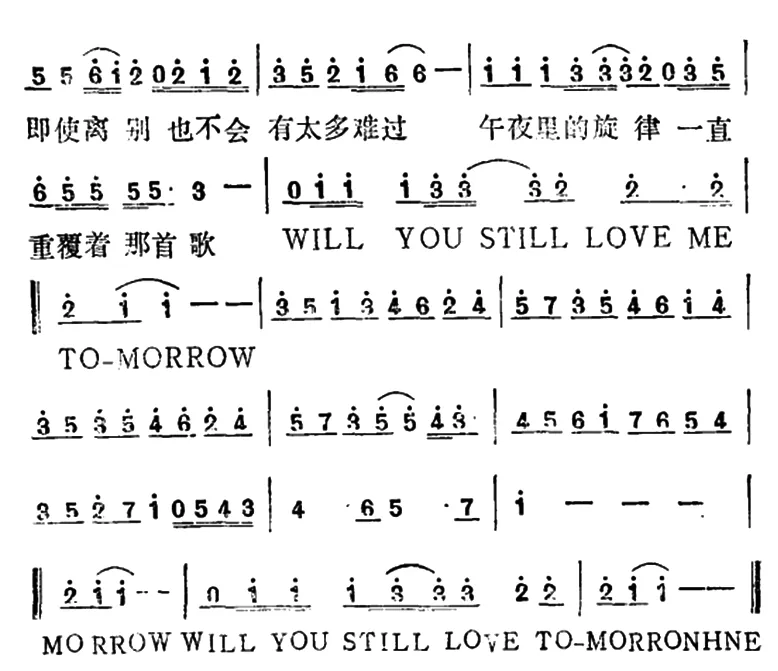 5 5 6 i 2 0 2 i 2 | 3 5 2 i 6 6 — | i i i 3 3 3 2 0 3 5 |
即使离 别 也不会 有太多难过 午夜里的旋 律 一直
6 5 5 5 5 · 3 — | 0 i i i 3 3 3 2 2 · 2 |
重覆着 那首歌 WILL YOU STILL LOVE ME
2 i i — — | 3 5 i 3 4 6 2 4 | 5 7 3 5 4 6 i 4 |
TO-MORROW
3 5 3 5 4 6 2 4 | 5 7 3 5 5 4 3 · | 4 5 6 i 7 6 5 4 |
3 5 2 7 i 0 5 4 3 | 4 · 6 5 · 7 | i — — — |
2 i i - - | 0 i i i 3 3 3 2 2 | 2 i i — —
MORROW WILL YOU STILL LOVE TO-MORRONHNE